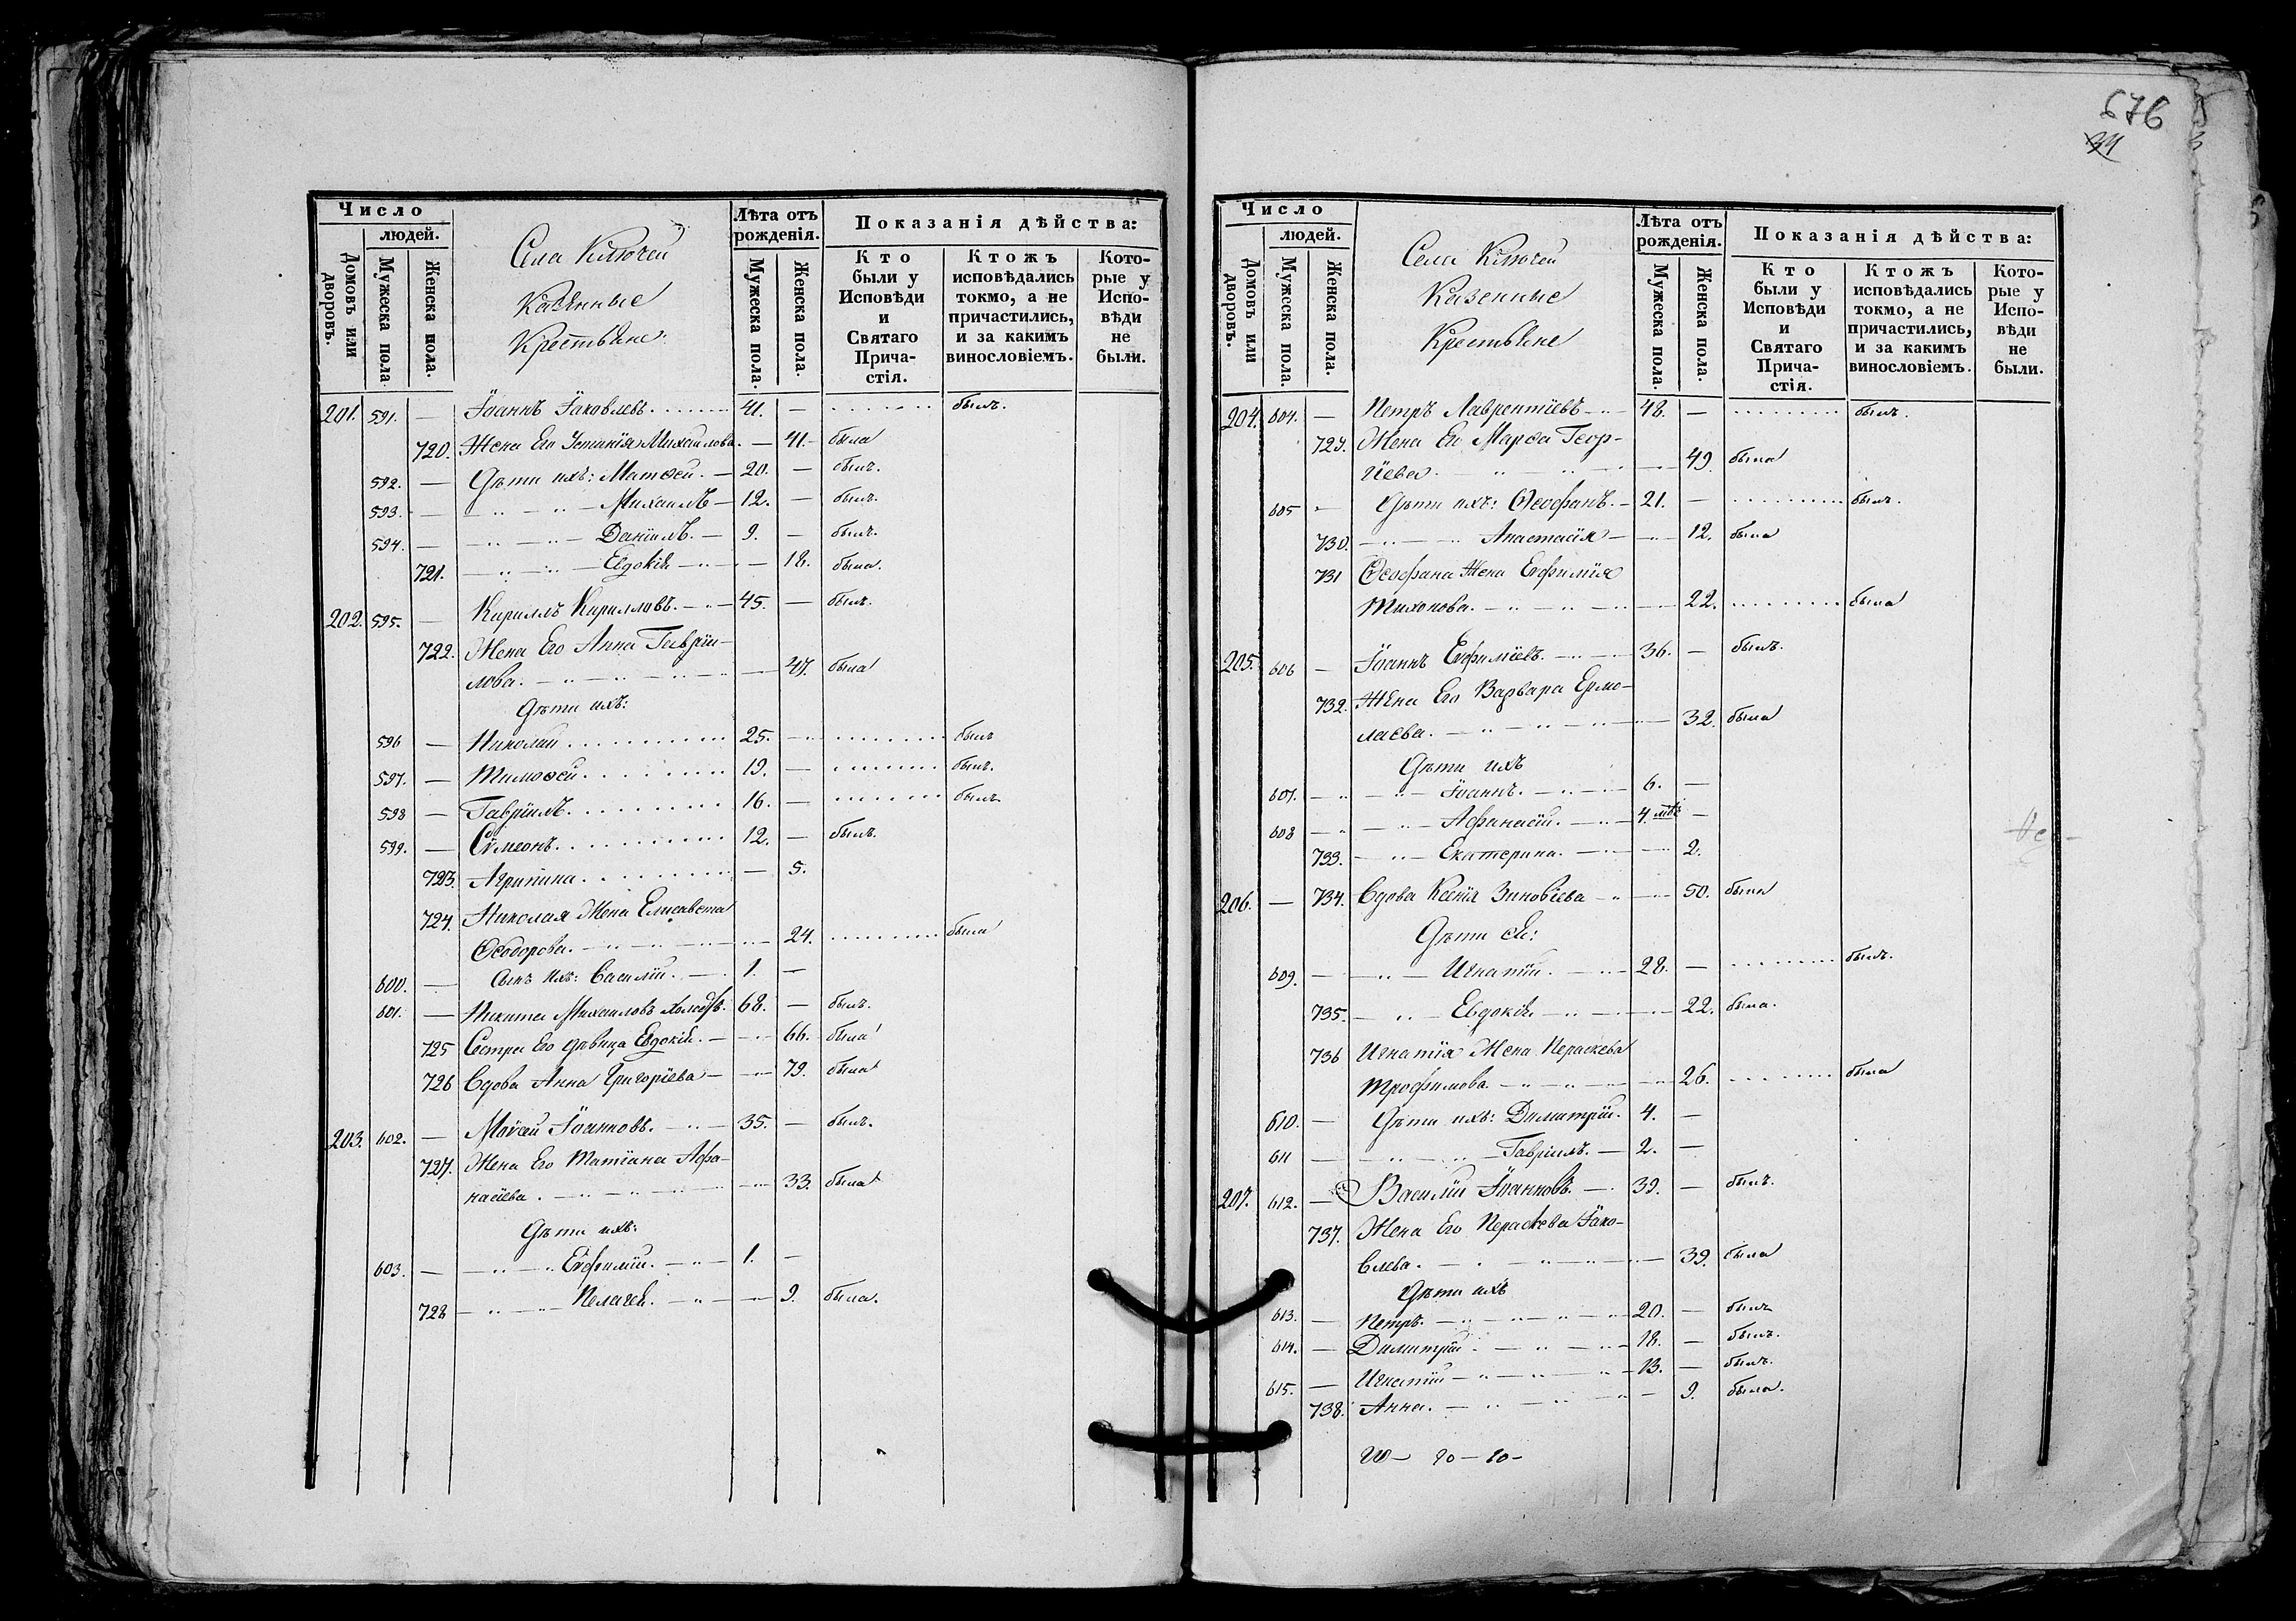 676
34
Число
людей.
Домовъ или дворовъ.
Мужеска пола.
Женска пола.
Села Ключей
Казенные
Крестьяне.
Лѣта отъ рожденія.
Мужеска пола.
Женска пола.
Показанія дѣйства:
Кто были у Исповѣди и Святаго Прича-стія.
Ктожъ исповѣдались токмо, а не причастились, и за какимъ винословіемъ.
Кото-рые у Испо-вѣди не были.
201. 591. — Іоаннъ Іаковлевъ. 41. — былъ.
720. Жена Его Устинія Михаилова. — 41. была
592. — Дѣти ихъ: Матѳей. — 20. — былъ.
593. — Михаилъ — 12. — былъ.
594. — Даніилъ. — 9. — былъ.
721. Евдокія — 18. была.
202. 595. — Кириллъ Кирилловъ. 45. — былъ.
722. Жена Его Анна Гаврiи-
лова. — 47. была
Дѣти ихъ:
596 — Николай 25. — былъ
597. — Тимоѳей. 19. — былъ.
598 — Гавріилъ. 16. — былъ
599. — Сѵмеонъ. 12. — былъ.
723. Агрипина. — 5.
724. Николая Жена Елисавета
Ѳеодорова. — 24. была
600. — Сынъ ихъ: Василій. 1. —
601. — Никита Михаиловъ холостъ. 68. — былъ.
725 Сестра Его дѣвица Евдокія. — 66. была
726 Вдова Анна Григоріева — 79. была
203. 602. — Моѵсей Іоанновъ. 35. — былъ.
727. Жена Его Татіана Аѳа-
насіева. — 33. была
Дѣти ихъ:
603. — Евфимій. — 1. —
728 Пелагея. — 9. была.
Число
людей.
Домовъ или дворовъ.
Мужеска пола.
Женска пола.
Села Ключей
Казенные
Крестьяне
Лѣта отъ рожденія.
Мужеска пола.
Женска пола.
Показанія дѣйства:
Кто были у Исповѣди и Святаго Прича-стія.
Ктожъ исповѣдались токмо, а не причастились, и за какимъ винословіемъ.
Кото-рые у Испо-вѣди не были.
204. 604. — Петръ Лаврентіевъ 48. — былъ.
729. Жена Его Марѳа Геор-
гіева. — 49. была
605 — Дѣти ихъ: Ѳеофанъ. — 21. — былъ.
730. Анастасія — 12. была
731 Ѳеофана Жена Евфимія
Тихонова. — 22. была
205. 606 — Іоаннъ Евфиміевъ. 36. — былъ.
732. Жена Его Варвара Ермо-
лаева. — 32. была
Дѣти ихъ
607. — Іоаннъ. — 6. —
608 — Аѳанасій. — 4. мѣс —
733. Екатерина. — 2.
206. — 734. Вдова Ксенія Зиновіева — 50. была
Дѣти ея:
609. — Игнатій. — 28. — былъ.
735. Евдокія — 22. была.
736 Игнатія Жена Параскева
Трофимова. — 26. была
610. — Дѣти ихъ: Димитрій. 4. —
611 — Гавріилъ. — 2. —
207. 612. — Василій Іоанновъ. — 39. — былъ.
737. Жена Его Параскева Іако-
влева. — 39. была
Дѣти ихъ
613. — Петръ. — 20. — былъ
614. — Димитрій. — 18. — былъ.
615. — Игнатій — 13. — былъ.
738. Анна. — 9. была.